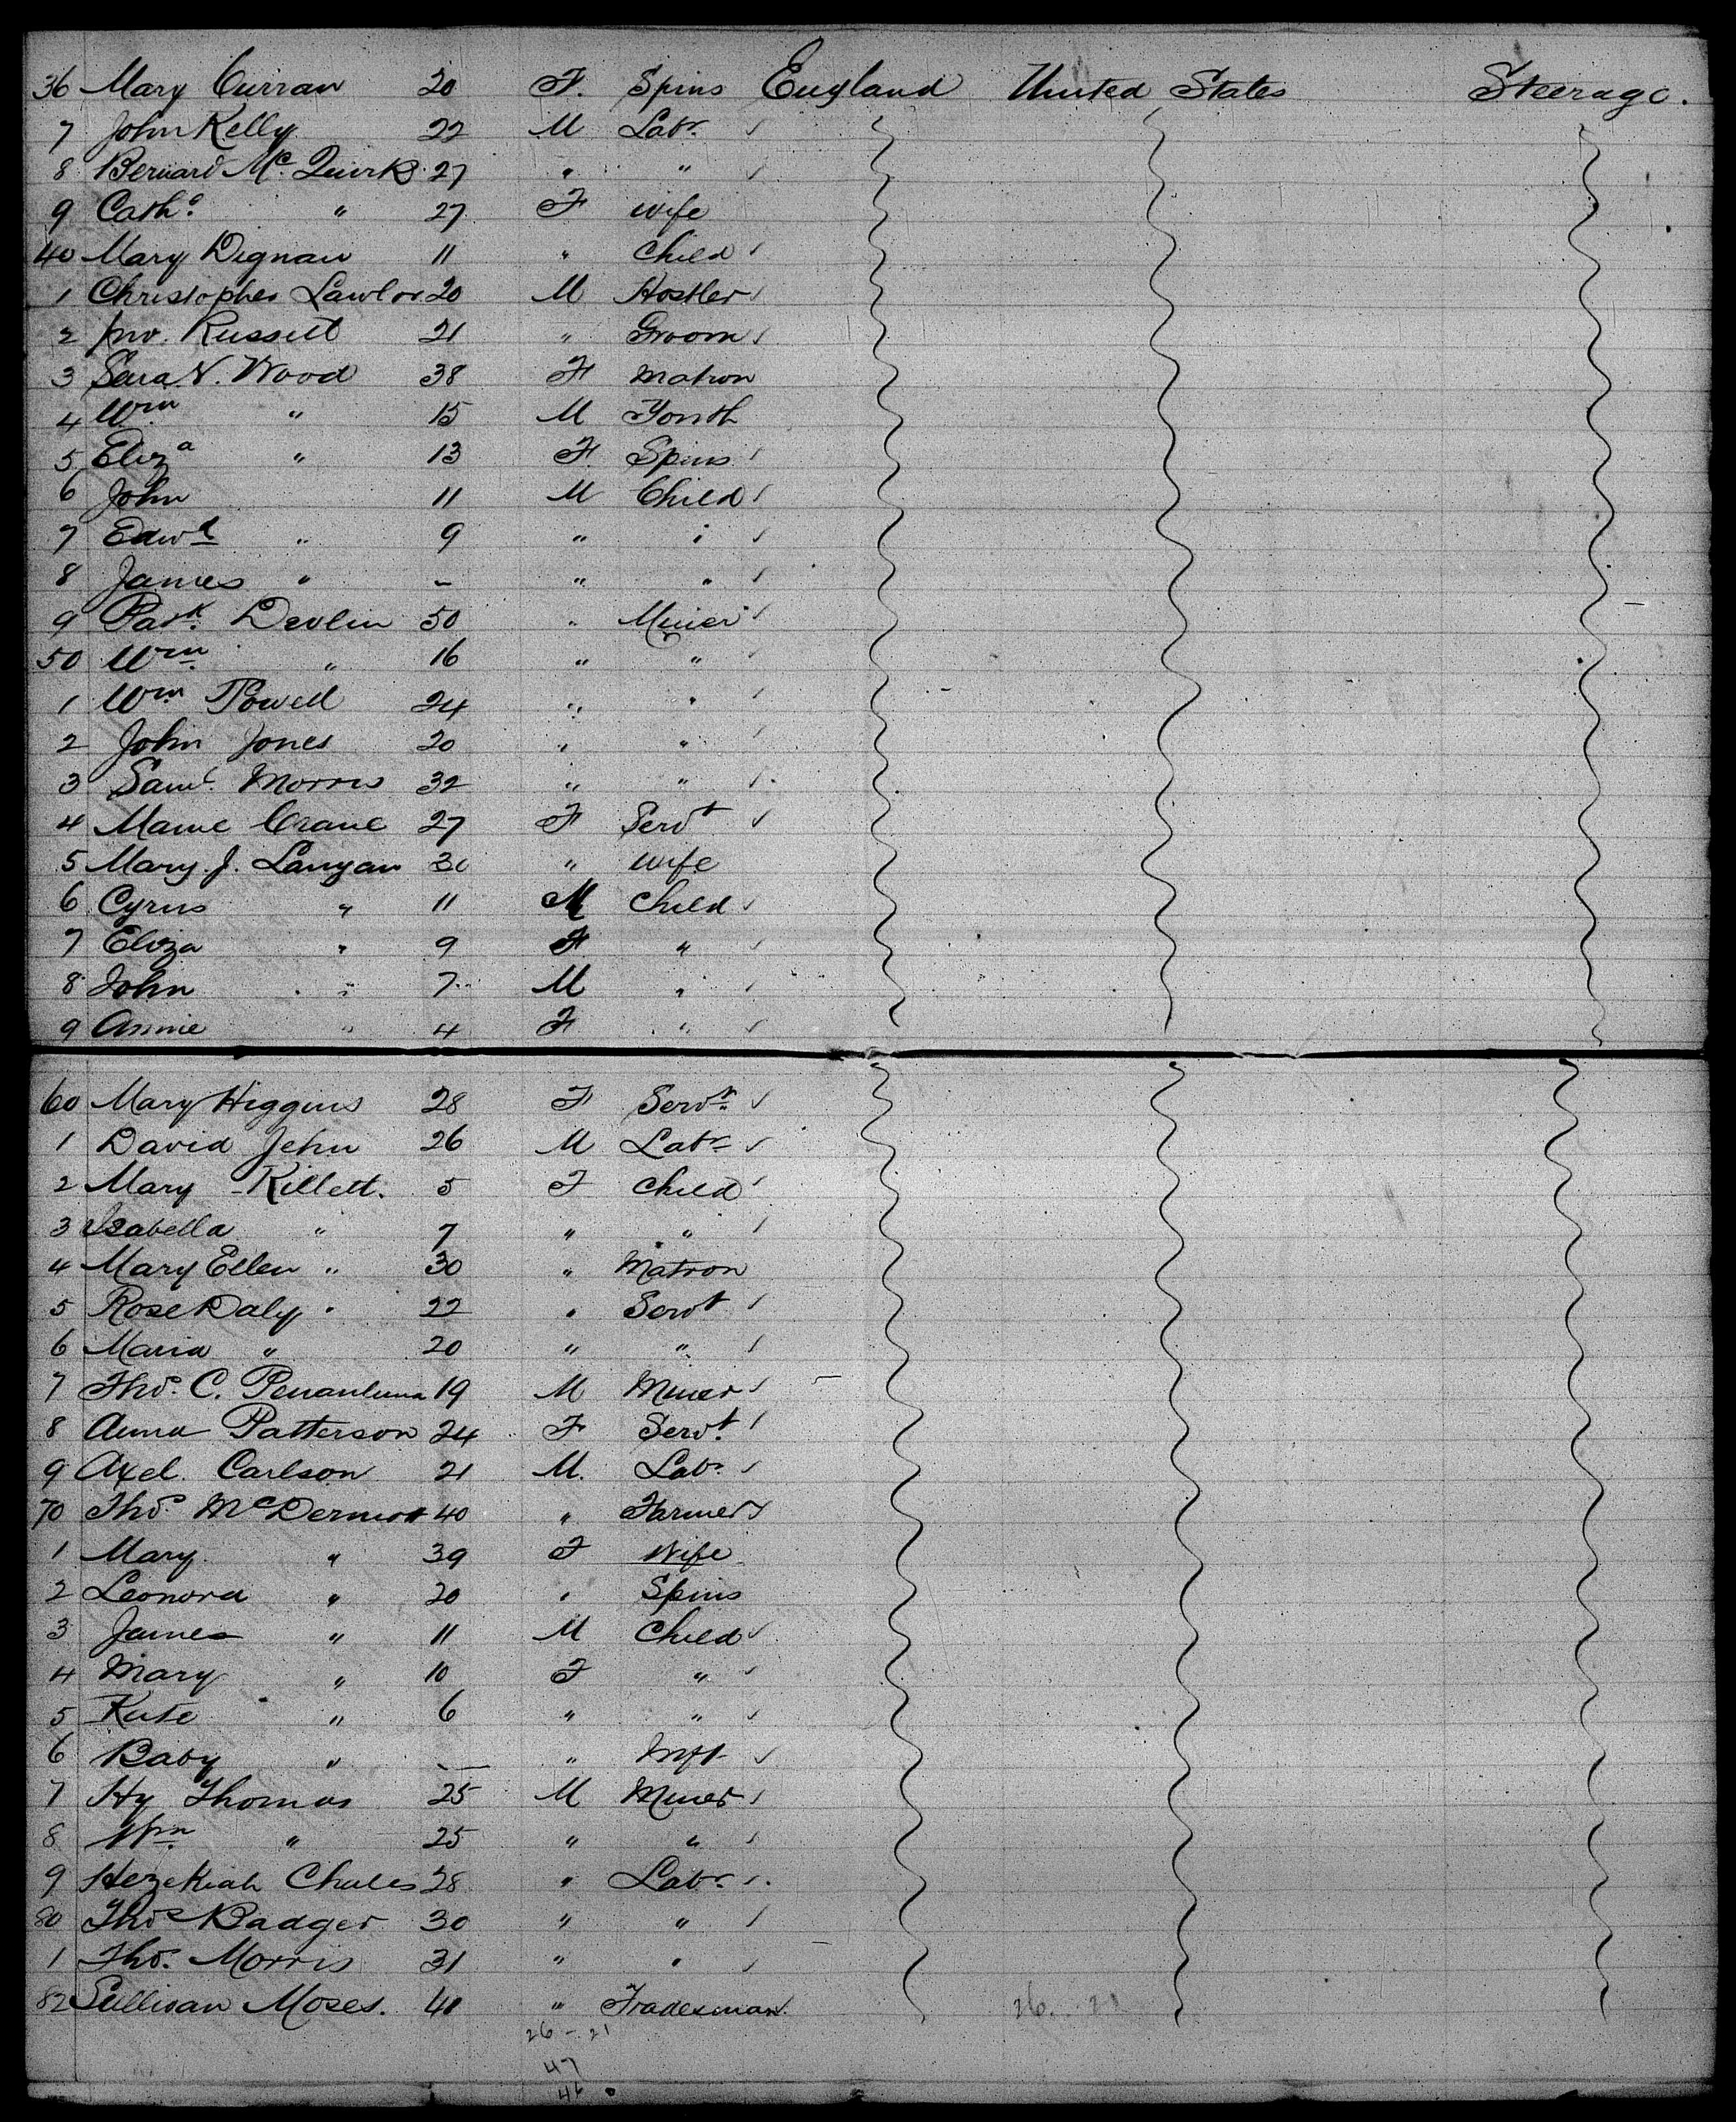 36 Mary Curran 20 F. Spins England United States Steerage.
7 John Kelly 22 M Labr ✓
8 Bernard Mc Quirk 27 " " ✓
9 Cathe " 27 F wife
40 Mary Dignan 11 " Child ✓
1 Christopher Lawlor 20 M Hostler ✓
2 Jno. Russell 21 " Groom ✓
3 Sara V. Wood 38 F Matron
4 Wm " 15 M Youth
5 Eliza " 13 F Spins ✓
6 John 11 M Child ✓
7 Edwd " 9 " " ✓
8 James " – " " ✓
9 Patk. Devlin 50 " Miner ✓
50 Wm " 16 " " ✓
1 Wm Powell 24 " " ✓
2 John Jones 20 " " ✓
3 Saml. Morris 32 " " ✓
4 Mame Crane 27 F Servt ✓
5 Mary. J. Lanyan " wife
6 Cyrus " 11 M Child ✓
7 Eliza " 9 F " ✓
8 John " 7 M " ✓
9 Annie " 4 F " ✓
60 Mary Higgins 28 F Servt. ✓
1 David Jehu 26 M Labr ✓
2 Mary Killett. 5 F Child ✓
3 Isabella " 7 " " ✓
4 Mary Ellen " 30 " Matron
5 Rose Daly 22 " Servt ✓
6 Maria " 20 " " ✓
7 Thos. C. Penanluna 19 M Miner ✓
8 Anna Patterson 24 F Servt. ✓
9 Axel. Carlson 21 M. Labr ✓
70 Thos McDermott 40 " Farmer ✓
1 Mary " 39 F Wife
2 Leonora " 20 " Spins
3 James " 11 M Child ✓
4 Mary " 10 F " ✓
5 Kate " 6 " " ✓
6 Baby " — " Inft ✓
7 Hy Thomas 25 M Miner ✓
8 Wm " 25 " " ✓
9 Hezekiah Chules 28 " Labr ✓
80 Thos Badger 30 " " ✓
1 Thos. Morris 31 " " ✓
82 Sullivan Moses. 40 " Tradesman. 26. 21
26 - 21
47
46